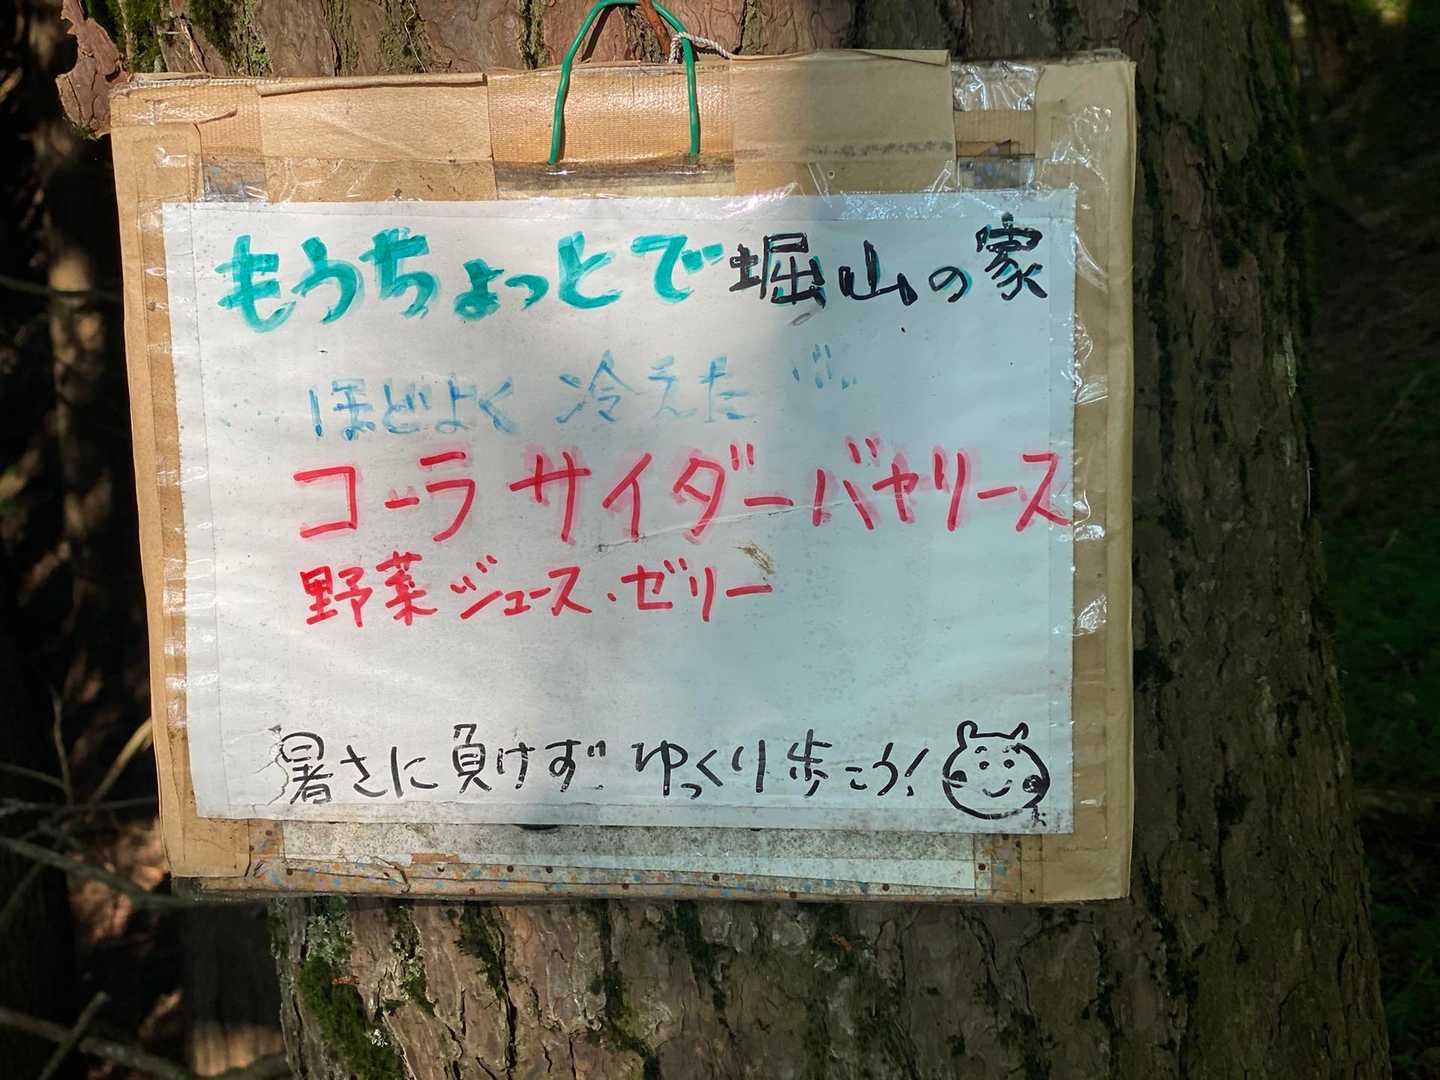 もうちょっとで堀山の家
ほどよく 冷えた
コーラ サイダー バヤリース
野菜ジュース・ゼリー
暑さに負けず ゆっくり歩こう!